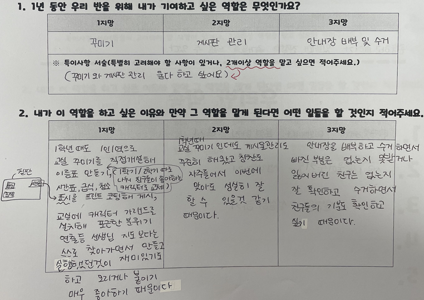 1. 1년 동안 우리 반을 위해 내가 기여하고 싶은 역할은 무엇인가요?
1지망
2지망
3지망
꾸미기
게시판 관리
안내장 배부 및 수거
※ 특이사항 서술(특별히 고려해야 할 사항이 있거나, 2개이상 역할을 맡고 싶으면 적어주세요.)
(꾸미기와 게시판 관리 둘다 하고 싶어요)
2. 내가 이 역할을 하고 싶은 이유와 만약 그 역할을 맡게 된다면 어떤 일들을 할 것인지 적어주세요.
1지망
2지망
3지망
1학년 때도 1인1역으로
교실 꾸미기를 직접개설해
이름표 만들기,
시간표, 급식, 청소
표시를 프린트 코팅해 게시,
교실에 캐릭터 가랜드를
설치해 포근한 분위기
연출등 선생님 지도보다는
스스로 찾아가면서 만들고
실행했던것이 재미있기도
하고 오리거나 붙이기
매우 좋아하기 때문이다
1학년때
교실 꾸미기 인데도 게시물관리도
꾸준히 해냈고
맡아도 성실히 잘
할 수 있을것 같기
때문이다.
안내장을 배부하고 수거하면서
빠진 부분은 없는지 못받거나
친구는 없는지
잘 확인하고 수거하면서
친구들의 기분도 확인하고
싶기 때문이다.